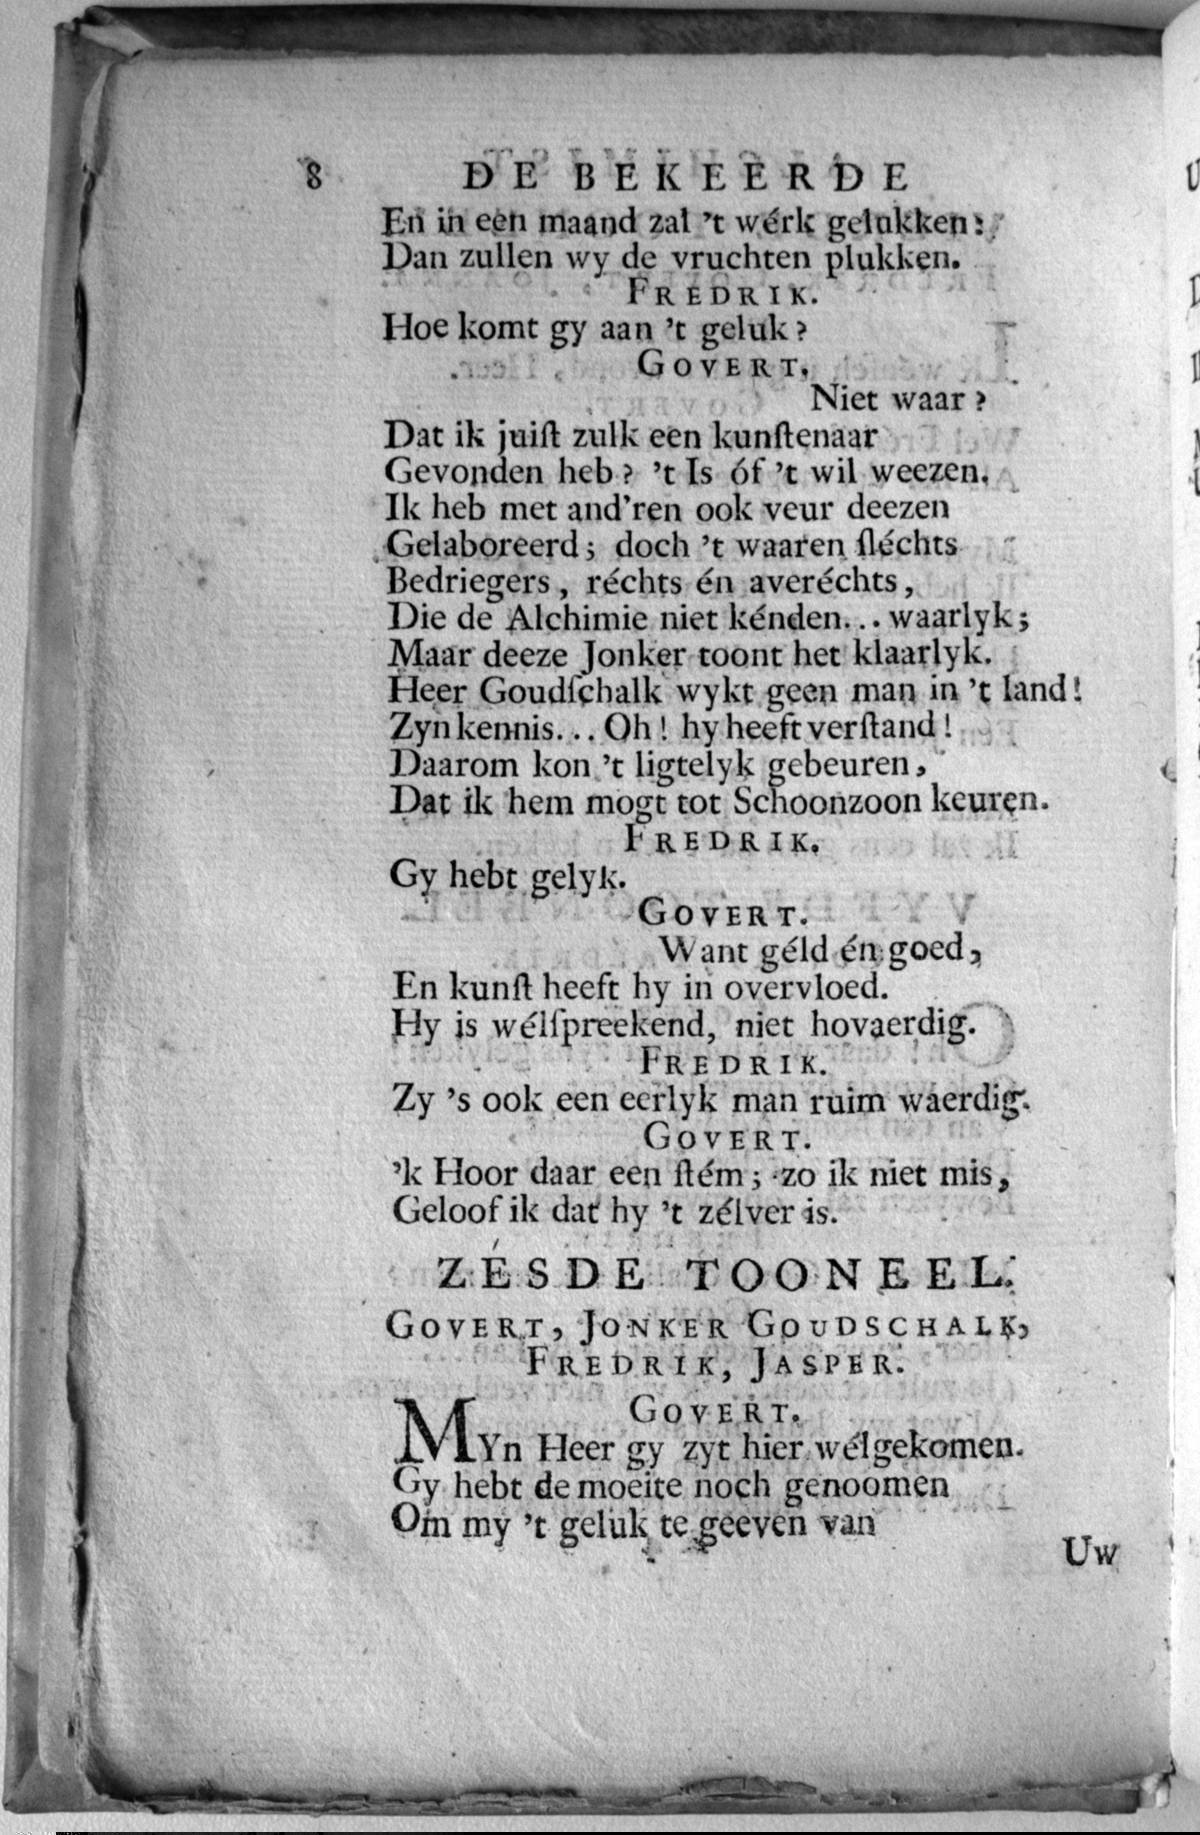 8 DE BEKEERDE
En in een maand zal 't wérk gelukken:
Dan zullen wy de vruchten plukken.
FREDRIK.
Hoe komt gy aan 't geluk?
GOVERT.
Niet waar?
Dat ik juiſt zulk een kunſtenaar
Gevonden heb? 't Is óf 't wil weezen.
Ik heb met and'ren ook veur deezen
Gelaboreerd; doch 't waaren ſléchts
Bedriegers, réchts én averéchts,
Die de Alchimie niet kénden... waarlyk;
Maar deeze Jonker toont het klaarlyk.
Heer Goudſchalk wykt geen man in 't land!
Zyn kennis... Oh! hy heeft verſtand!
Daarom kon 't ligtelyk gebeuren,
Dat ik hem mogt tot Schoonzoon keuren.
FREDRIK.
Gy hebt gelyk.
GOVERT.
Want géld én goed,
En kunſt heeft hy in overvloed.
Hy is wélſpreekend, niet hovaerdig.
FREDRIK.
Zy 's ook een eerlyk man ruim waerdig.
GOVERT.
'k Hoor daar een ſtém; zo ik niet mis,
Geloof ik dat hy 't zélver is.
ZÉSDE TOONEEL.
GOVERT, JONKER GOUDSCHALK,
FREDRIK, JASPER.
GOVERT.
MYn Heer gy zyt hier wélgekomen.
Gy hebt de moeite noch genoomen
Om my 't geluk te geeven van
Uw